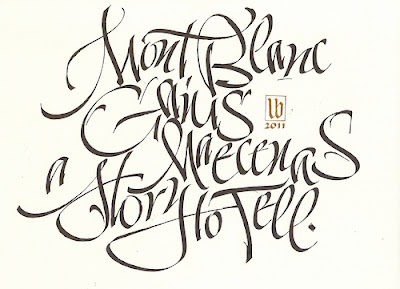 Mont Blanc
Gaius
lb
2011
Maecenas
a Story to Tell.